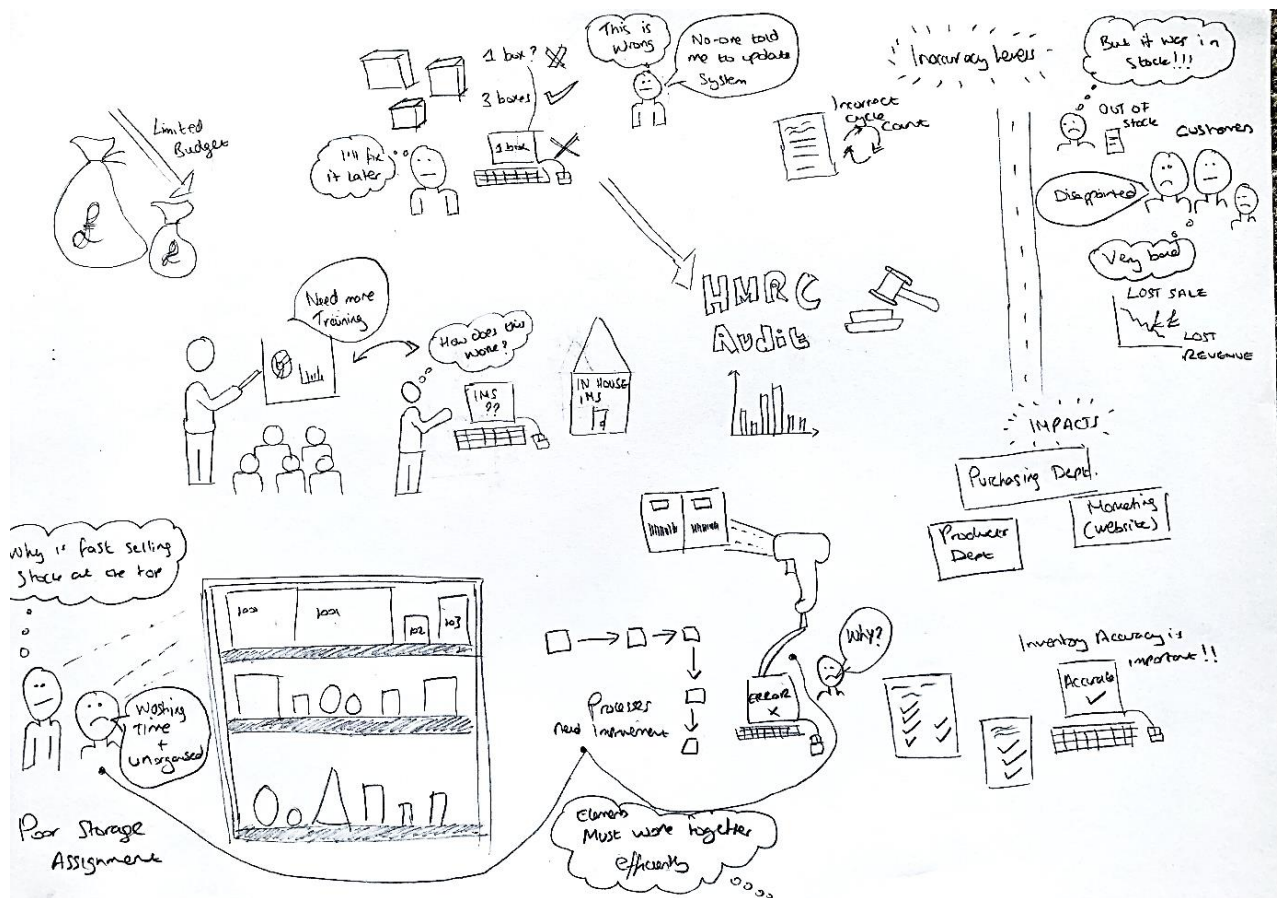 Limited
Budget
£
£
1 box?
3 boxes
1 box
I'll fix
it later
This is
Wrong
No-one told
me to update
System
Incorrect
cycle
count
Inaccuracy Levels
But it was in
Stock!!!
OUT OF
Stock
Customers
Disappointed
Very bad
LOST SALE
££
LOST
REVENUE
Need more
Training
How does this
work?
IMS
??
IN HOUSE
IMS
HMRC
Audit
IMPACTS
Purchasing Dept.
Marketing
(website)
Products
Dept
Why is fast selling
Stock at the top
102
103
Wasting
Time
+
unorganised
Poor Storage
Assignment
Processes
need Improvement
ERROR
X
Why?
Elements
Must work together
efficiently
Inventory Accuracy is
important!!
Accurate